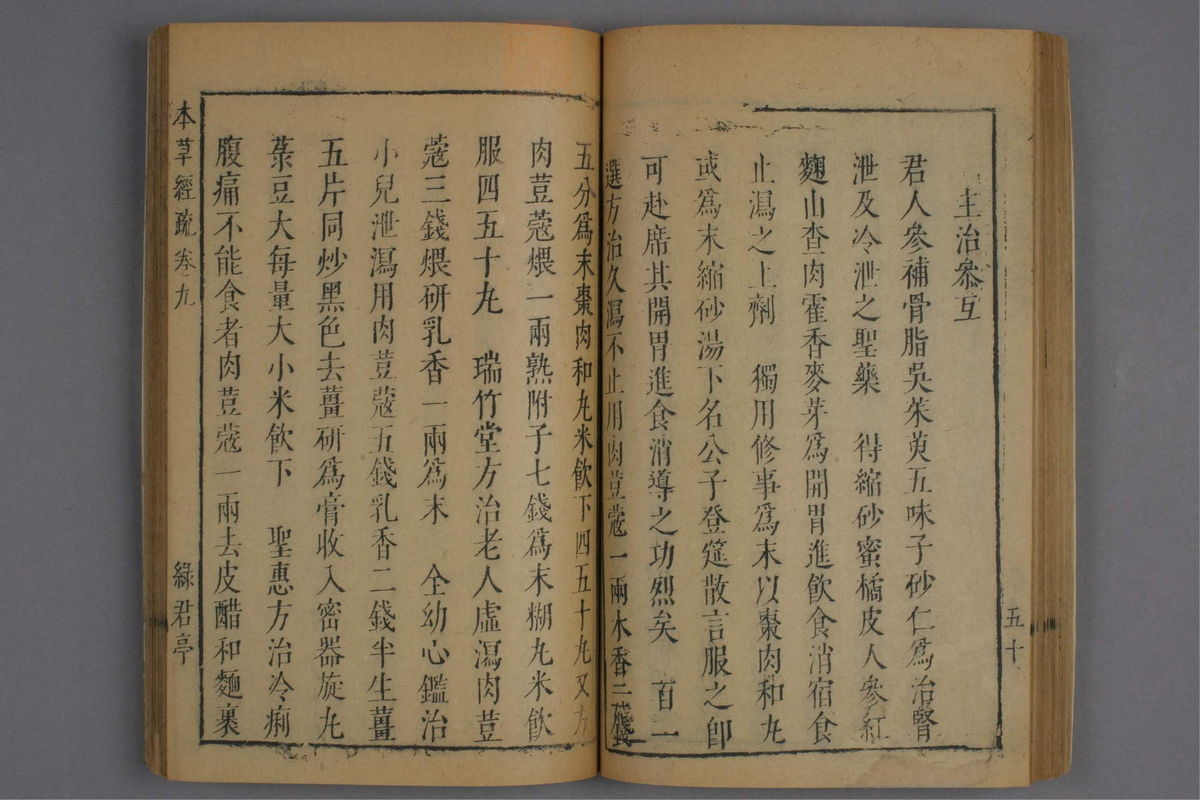 五十
主治叅互
君人參補骨脂吳茱萸五味子砂仁爲治腎
泄及冷泄之聖藥　得縮砂蜜橘皮人參紅
麴山查肉霍香麥芽爲開胃進飲食消宿食
止瀉之上劑　獨用修事爲末以棗肉和丸
或爲末縮砂湯下名公子登筵散言服之卽
可赴席其開胃進食消導之功烈矣　百一
選方治久瀉不止用肉荳蔻一兩木香二錢
五分爲末棗肉和丸米飲下四五十丸又方
肉荳蔻煨一兩熟附子七錢爲末糊丸米飲
服四五十丸　瑞竹堂方治老人虛瀉肉荳
蔻三錢煨研乳香一兩爲末　全幼心鑑治
小兒泄瀉用肉荳蔻五錢乳香二錢半生薑
五片同炒黑色去薑研爲膏收入密器旋丸
菉豆大每量大小米飲下　聖惠方治冷痢
腹痛不能食者肉荳蔻一兩去皮醋和麵裹
本草經疏 卷九 綠君亭